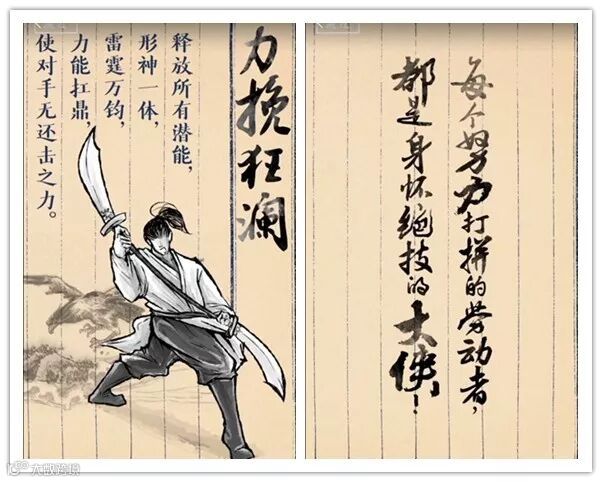 力挽狂澜
释放所有潜能，
形神一体，
雷霆万钧，
力能扛鼎，
使对手无还击之力。
每个努力打拼的劳动者，
都是身怀绝技的大侠！
大数跨境